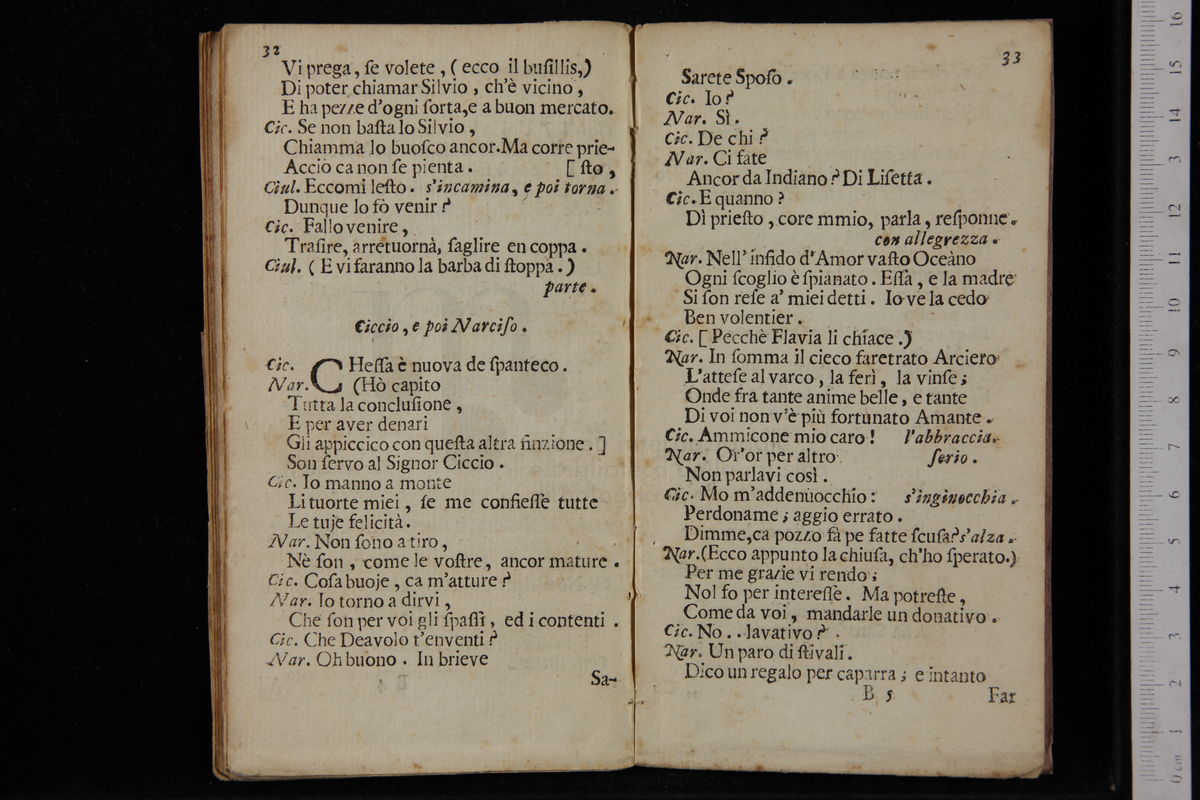 32
Vi prega, ſe volete, (ecco il buſillis,)
Di poter chiamar Silvio, ch'è vicino,
E ha pezze d'ogni ſorta, e a buon mercato.
Cic. Se non baſta lo Silvio,
Chiamma lo buoſco ancor. Ma corre prie-
Acciò ca non ſe pienta. [ſto,
Ciul. Eccomi leſto. s'incamina, e poi torna.
Dunque lo fò venir?
Cic. Fallo venire,
Traſire, arretuornà, ſaglire en coppa.
Ciul. (E vi faranno la barba di ſtoppa.)
parte.
Ciccio, e poi Narciſo.
Cic. CHeſſa è nuova de ſpanteco.
Nar. (Hò capito
Tutta la concluſione,
E per aver denari
Gli appiccico con queſta altra finzione.]
Son ſervo al Signor Ciccio.
Cic. Io manno a monte
Li tuorte miei, ſe me confieſſe tutte
Le tuje felicità.
Nar. Non ſono a tiro,
Nè ſon, come le voſtre, ancor mature.
Cic. Coſa buoje, ca m'atture?
Nar. Io torno a dirvi,
Che ſon per voi gli ſpaſſi, ed i contenti.
Cic. Che Deavolo t'enventi?
Nar. Oh buono. In brieve
Sa-
33
Sarete Spoſo.
Cic. Io?
Nar. Sì.
Cic. De chi?
Nar. Ci fate
Ancor da Indiano? Di Liſetta.
Cic. E quanno?
Dì prieſto, core mmio, parla, reſponne.
con allegrezza.
Nar. Nell' infido d'Amor vaſto Oceàno
Ogni ſcoglio è ſpianato. Eſſa, e la madre
Si ſon reſe a' miei detti. Io ve la cedo
Ben volentier.
Cic. [Pecchè Flavia li chiace.)
Nar. In ſomma il cieco faretrato Arciero
L'atteſe al varco, la ferì, la vinſe;
Onde fra tante anime belle, e tante
Di voi non v'è più fortunato Amante.
Cic. Ammicone mio caro! l'abbraccia.
Nar. Or'or per altro ſerio.
Non parlavi così.
Cic. Mo m'addenuocchio: s'inginocchia.
Perdoname; aggio errato.
Dimme, ca pozzo fà pe fatte ſcuſa? s'alza.
Nar. (Ecco appunto la chiuſa, ch'ho ſperato.)
Per me grazie vi rendo;
Nol fo per intereſſe. Ma potreſte,
Come da voi, mandarle un donativo.
Cic. No.. lavativo?
Nar. Un paro di ſtivali.
Dico un regalo per caparra; e intanto
B 5 Far
16
15
14
13
12
11
10
9
8
7
6
5
4
3
2
1
0 cm